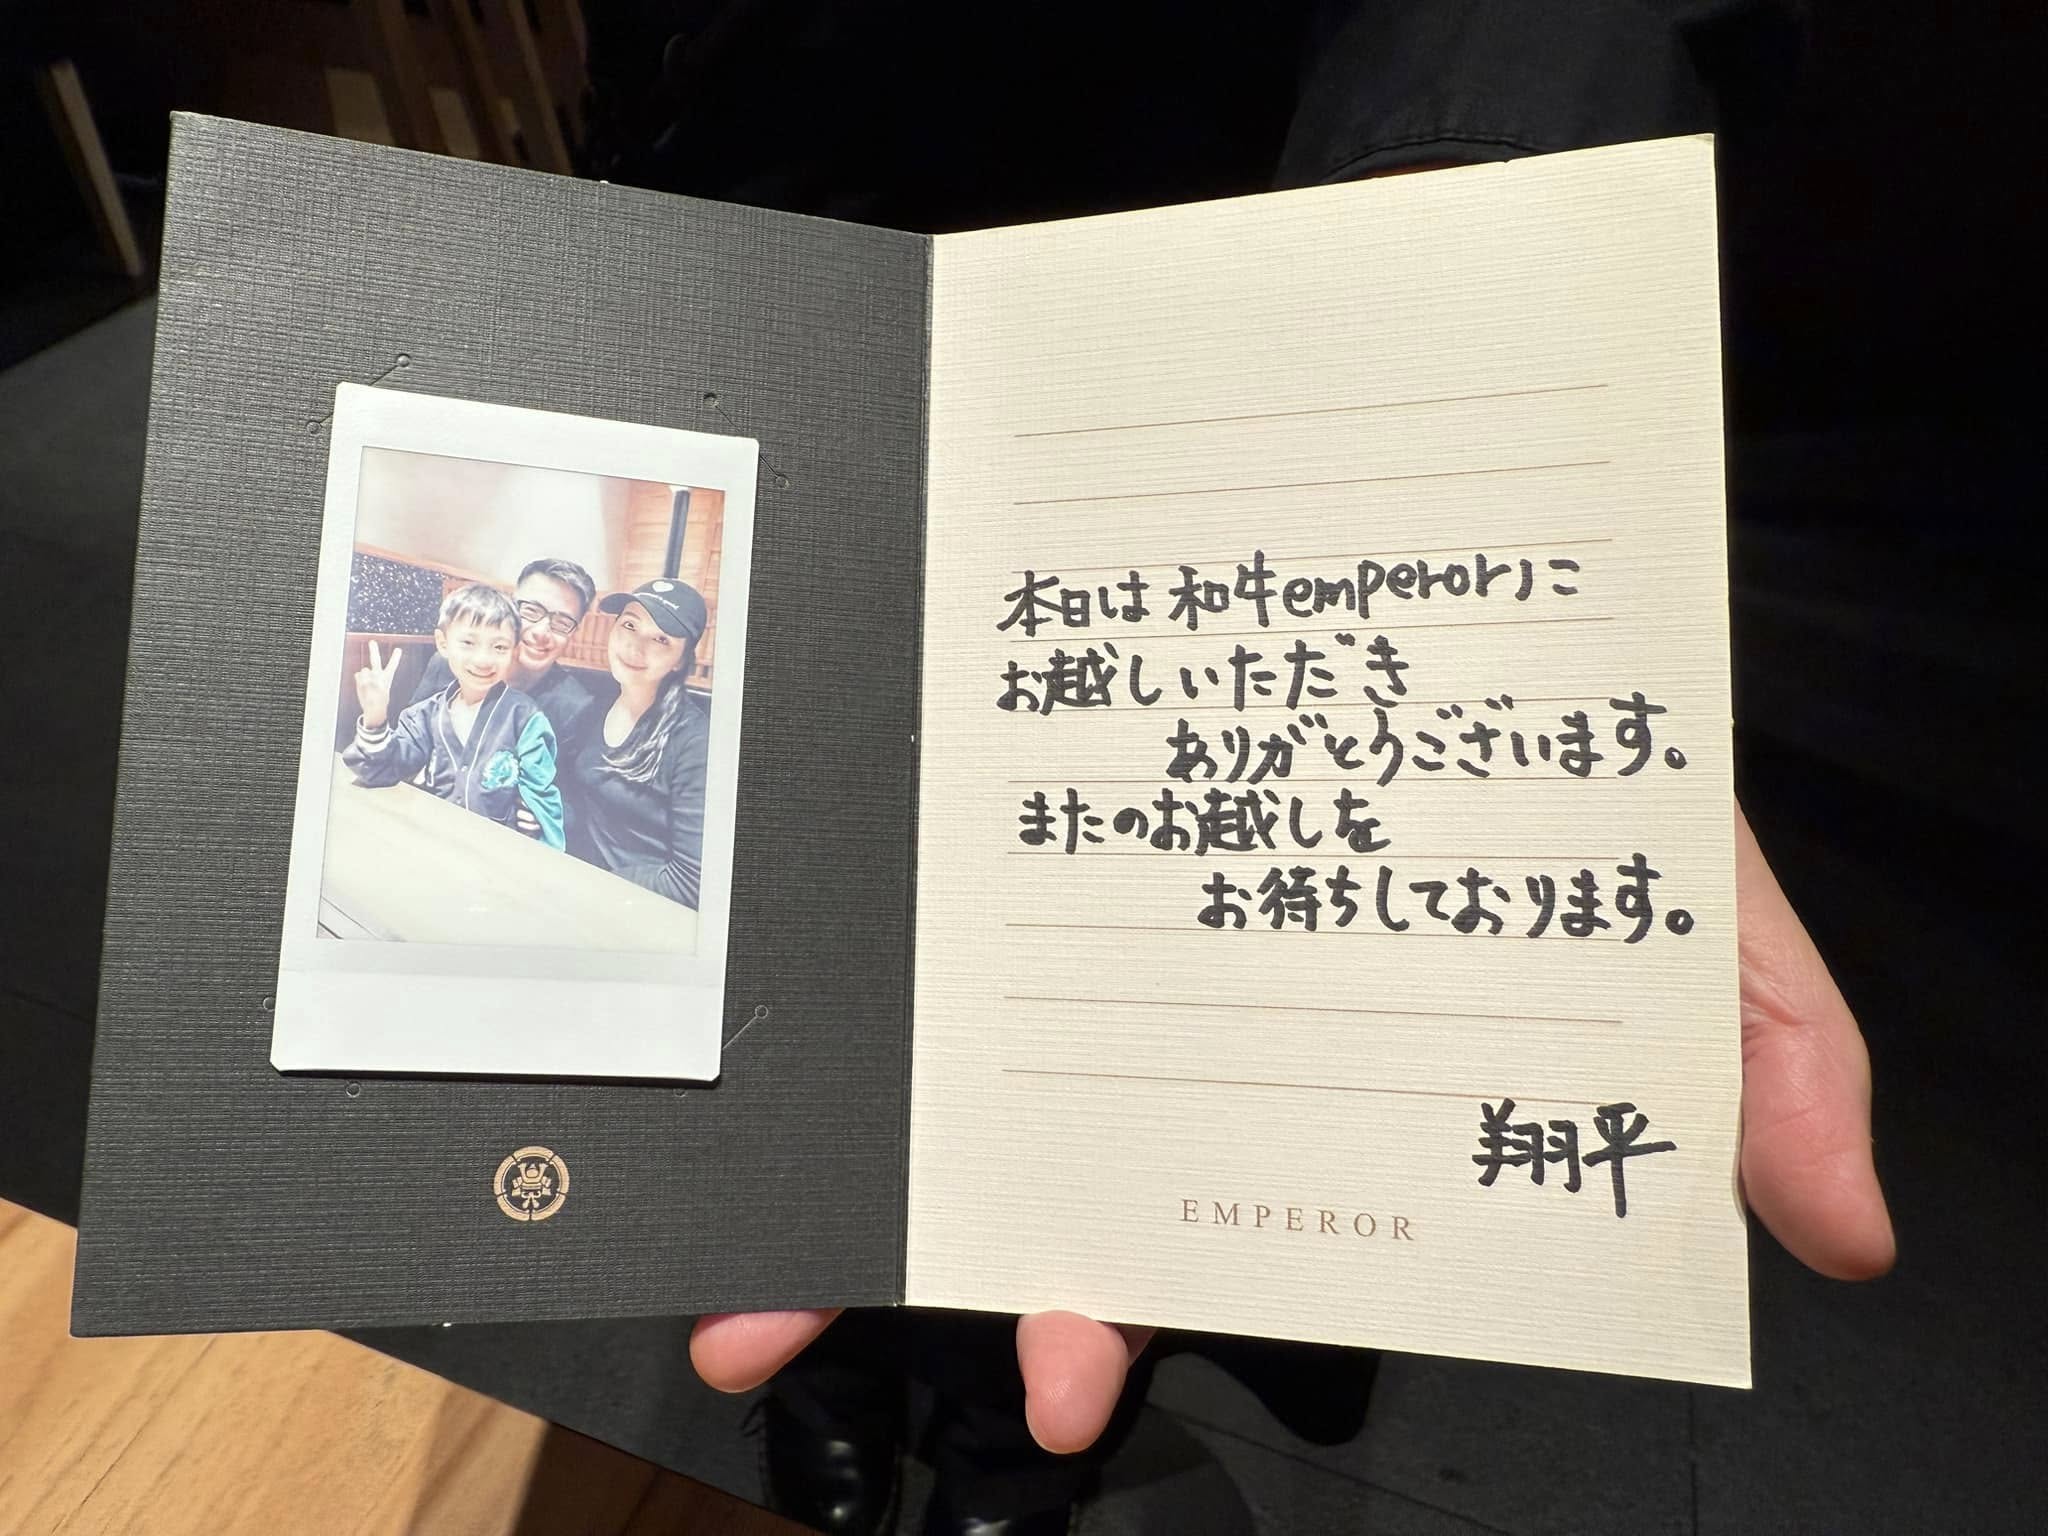 本日は和牛emperorに
お越しいただき
ありがとうございます。
またのお越しを
お待ちしております。
翔平
EMPEROR